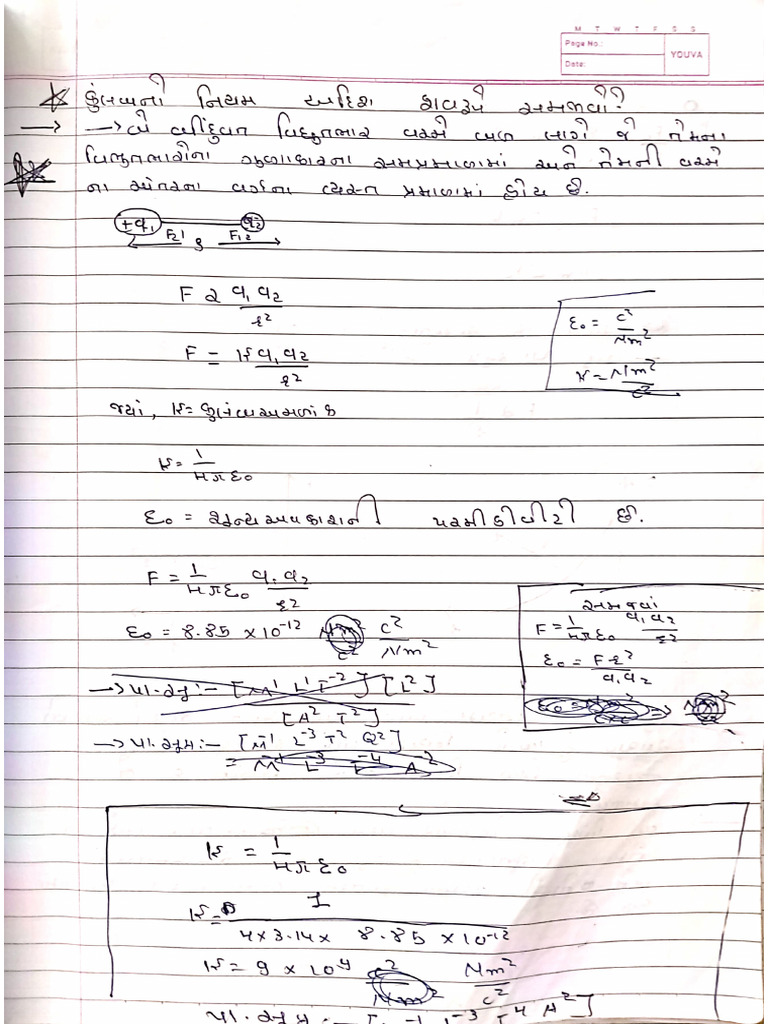 M T W T F S S
Page No.:
Date:
YOUVA
કુંલબનો નિયમ અદિશ સ્વરૂપે સમજાવો?
→ બે બિંદુવત વિદ્યુતભાર વચ્ચે બળ લાગે જે તેમના
વિદ્યુતભારોના ગુણાકારના સમપ્રમાણમાં અને તેમની વચ્ચે
ના અંતરના વર્ગના વ્યસ્ત પ્રમાણમાં હોય છે.
+q₁ q₂
F₂₁ r F₁₂
F ∝ q₁ q₂ / r²
F = k q₁ q₂ / r²
ε₀ = c² / Nm²
k = Nm² / c²
જ્યાં, k = કુલંબઅચળાંક
k = 1 / 4π ε₀
ε₀ = શૂન્યઅવકાશની પરમીટીવીટી છે.
F = 1 / 4π ε₀ q₁ q₂ / r²
ε₀ = 8.85 × 10⁻¹² c² / Nm²
સમજવાં
F = 1 / 4π ε₀ q₁ q₂ / r²
ε₀ = F r² / q₁ q₂
→ પા.સૂ :- [M¹ L¹ T⁻²] [L²] / [A² T²]
→ પા.સૂત્ર :- [M⁻¹ L⁻³ T² Q²]
= M⁻¹ L⁻³ A²
k = 1 / 4π ε₀
k = 1 / 4 × 3.14 × 8.85 × 10⁻¹²
k = 9 × 10⁹ Nm² / c²
પા.સૂત્ર :- L⁻³ T⁴ A²]